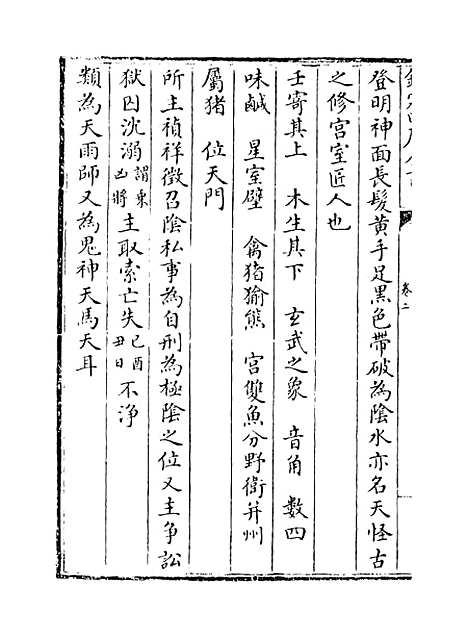 欽定四庫全書
卷二
登明神面長髮黃手足黑色帶破為陰水亦名天怪古
之修宮室匠人也
壬寄其上　木生其下　玄武之象　音角　數四
味鹹　星室壁　禽猪㺄熊　宮雙魚分野衛并州
屬猪　位天門
所主禎祥徵召陰私事為自刑為極陰之位又主爭訟
獄囚沈溺謂乘凶將主取索亡失已酉丑日不淨
類為天雨師又為鬼神天馬天耳